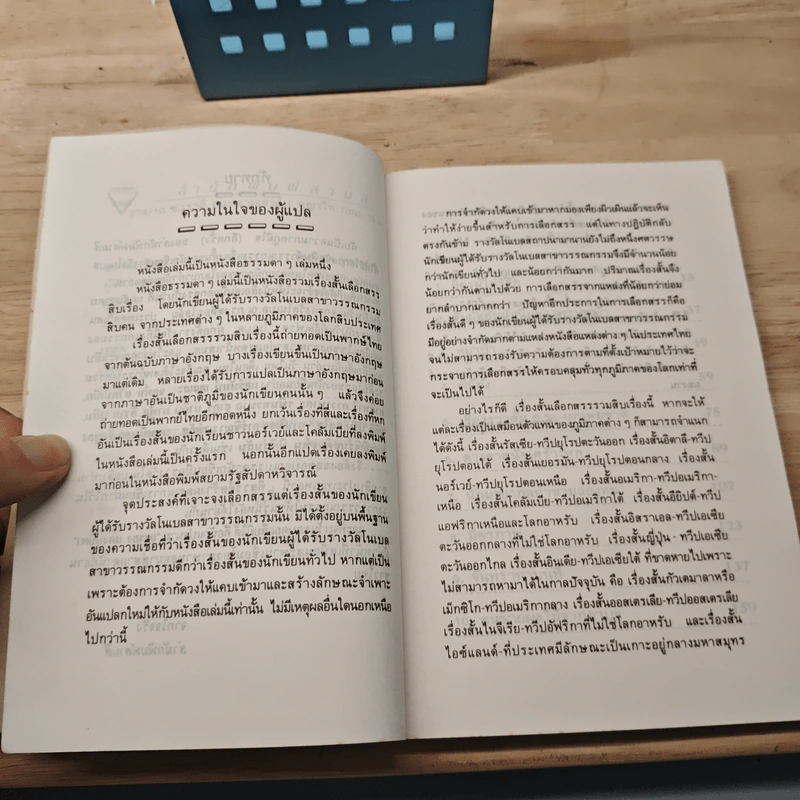 ความในใจของผู้แปล
หนังสือเล่มนี้เป็นหนังสือธรรมดา ๆ เล่มหนึ่ง
หนังสือธรรมดา ๆ เล่มนี้เป็นหนังสือรวมเรื่องสั้นเลือกสรร
สิบเรื่อง โดยนักเขียนผู้ได้รับรางวัลโนเบลสาขาวรรณกรรม
สิบคน จากประเทศต่าง ๆ ในหลายภูมิภาคของโลกสิบประเทศ
เรื่องสั้นเลือกสรรรวมสิบเรื่องนี้ถ่ายทอดเป็นพากษ์ไทย
จากต้นฉบับภาษาอังกฤษ บางเรื่องเขียนขึ้นเป็นภาษาอังกฤษ
มาแต่เดิม หลายเรื่องได้รับการแปลเป็นภาษาอังกฤษมาก่อน
จากภาษาอันเป็นชาติภูมิของนักเขียนคนนั้น ๆ แล้วจึงค่อย
ถ่ายทอดเป็นพากย์ไทยอีกทอดหนึ่ง ยกเว้นเรื่องที่สี่และเรื่องที่หก
อันเป็นเรื่องสั้นของนักเขียนชาวนอร์เวย์และโคลัมเบียที่ลงพิมพ์
ในหนังสือเล่มนี้เป็นครั้งแรก นอกนั้นอีกแปดเรื่องเคยลงพิมพ์
มาก่อนในหนังสือพิมพ์สยามรัฐสัปดาหวิจารณ์
จุดประสงค์ที่เจาะจงเลือกสรรแต่เรื่องสั้นของนักเขียน
ผู้ได้รับรางวัลโนเบลสาขาวรรณกรรมนั้น มิได้ตั้งอยู่บนพื้นฐาน
ของความเชื่อที่ว่าเรื่องสั้นของนักเขียนผู้ได้รับรางวัลโนเบล
สาขาวรรณกรรมดีกว่าเรื่องสั้นของนักเขียนทั่วไป หากแต่เป็น
เพราะต้องการจำกัดวงให้แคบเข้ามาและสร้างลักษณะจำเพาะ
อันแปลกใหม่ให้กับหนังสือเล่มนี้เท่านั้น ไม่มีเหตุผลอื่นใดนอกเหนือ
ไปกว่านี้
การจำกัดวงให้แคบเข้ามาหากมองเพียงผิวเผินแล้วจะเห็น
ว่าทำให้ง่ายขึ้นสำหรับการเลือกสรร แต่ในทางปฏิบัติกลับ
ตรงกันข้าม รางวัลโนเบลสถาปนามานานยังไม่ถึงหนึ่งศตวรรษ
นักเขียนผู้ได้รับรางวัลโนเบลสาขาวรรณกรรมจึงมีจำนวนน้อย
กว่านักเขียนทั่วไป และน้อยกว่ากันมาก ปริมาณเรื่องสั้นจึง
น้อยกว่ากันตามไปด้วย การเลือกสรรจากแหล่งที่น้อยกว่าย่อม
ยากลำบากมากกว่า ปัญหาอีกประการในการเลือกสรรก็คือ
เรื่องสั้นดี ๆ ของนักเขียนผู้ได้รับรางวัลโนเบลสาขาวรรณกรรม
มีอยู่อย่างจำกัดมากตามแหล่งหนังสือแหล่งต่าง ๆ ในประเทศไทย
จนไม่สามารถรองรับความต้องการตามที่ตั้งเป้าหมายไว้ว่าจะ
กระจายการเลือกสรรให้ครอบคลุมทั่วทุกภูมิภาคของโลกเท่าที่
จะเป็นไปได้
อย่างไรก็ดี เรื่องสั้นเลือกสรรรวมสิบเรื่องนี้ หากจะให้
แต่ละเรื่องเป็นเสมือนตัวแทนของภูมิภาคต่าง ๆ ก็สามารถจำแนก
ได้ดังนี้ เรื่องสั้นรัสเซีย-ทวีปยุโรปตะวันออก เรื่องสั้นอิตาลี-ทวีป
ยุโรปตอนใต้ เรื่องสั้นเยอรมัน-ทวีปยุโรปตอนกลาง เรื่องสั้น
นอร์เวย์-ทวีปยุโรปตอนเหนือ เรื่องสั้นอเมริกา-ทวีปอเมริกา-
เหนือ เรื่องสั้นโคลัมเบีย-ทวีปอเมริกาใต้ เรื่องสั้นอียิปต์-ทวีป
แอฟริกาเหนือและโลกอาหรับ เรื่องสั้นอิสราเอล-ทวีปเอเซีย
ตะวันออกกลางที่ไม่ใช่โลกอาหรับ เรื่องสั้นญี่ปุ่น - ทวีปเอเซีย
ตะวันออกไกล เรื่องสั้นอินเดีย-ทวีปเอเซียใต้ ที่ขาดหายไปเพราะ
ไม่สามารถหามาได้ในกาลปัจจุบัน คือ เรื่องสั้นกัวเตมาลาหรือ
เม็กซิโก-ทวีปอเมริกากลาง เรื่องสั้นออสเตรเลีย-ทวีปออสเตรเลีย
เรื่องสั้นไนจีเรีย-ทวีปอัฟริกาที่ไม่ใช่โลกอาหรับ และเรื่องสั้น
ไอซ์แลนด์-ที่ประเทศมีลักษณะเป็นเกาะอยู่กลางมหาสมุทร